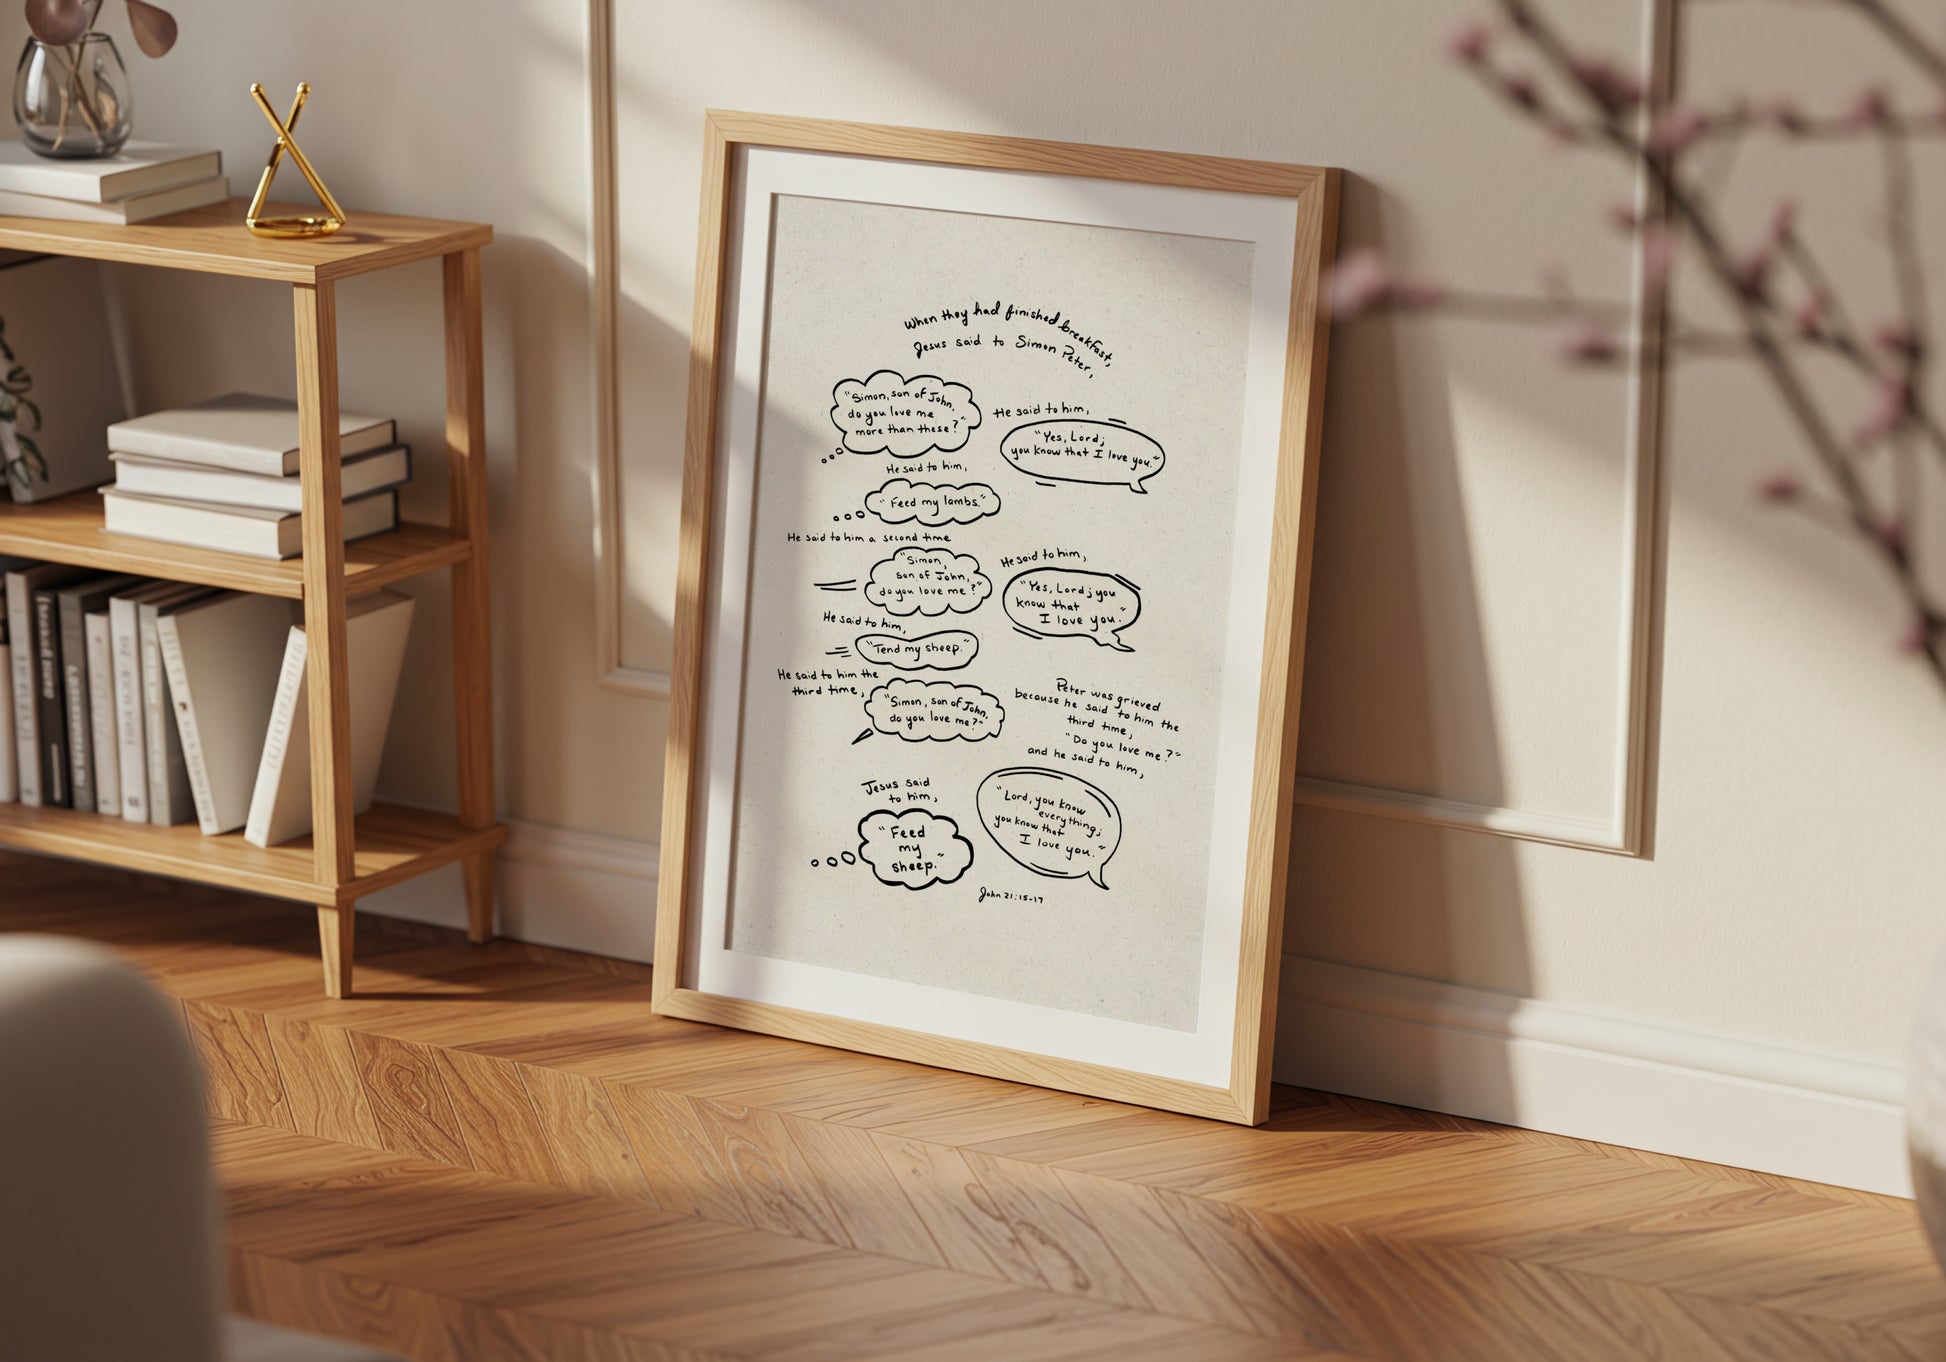 When they had finished breakfast,
Jesus said to Simon Peter,
"Simon, son of John,
do you love me
more than these?"
He said to him,
"Yes, Lord;
you know that I love you."
He said to him,
"Feed my lambs."
He said to him a second time
"Simon,
son of John,
do you love me?"
He said to him,
"Yes, Lord; you
know that
I love you."
He said to him,
"Tend my sheep."
He said to him the
third time,
"Simon, son of John,
do you love me?"
Peter was grieved
because he said to him the
third time,
"Do you love me?"
and he said to him,
"Lord, you know
everything;
you know that
I love you."
Jesus said
to him,
"Feed
my
sheep."
John 21:15-17